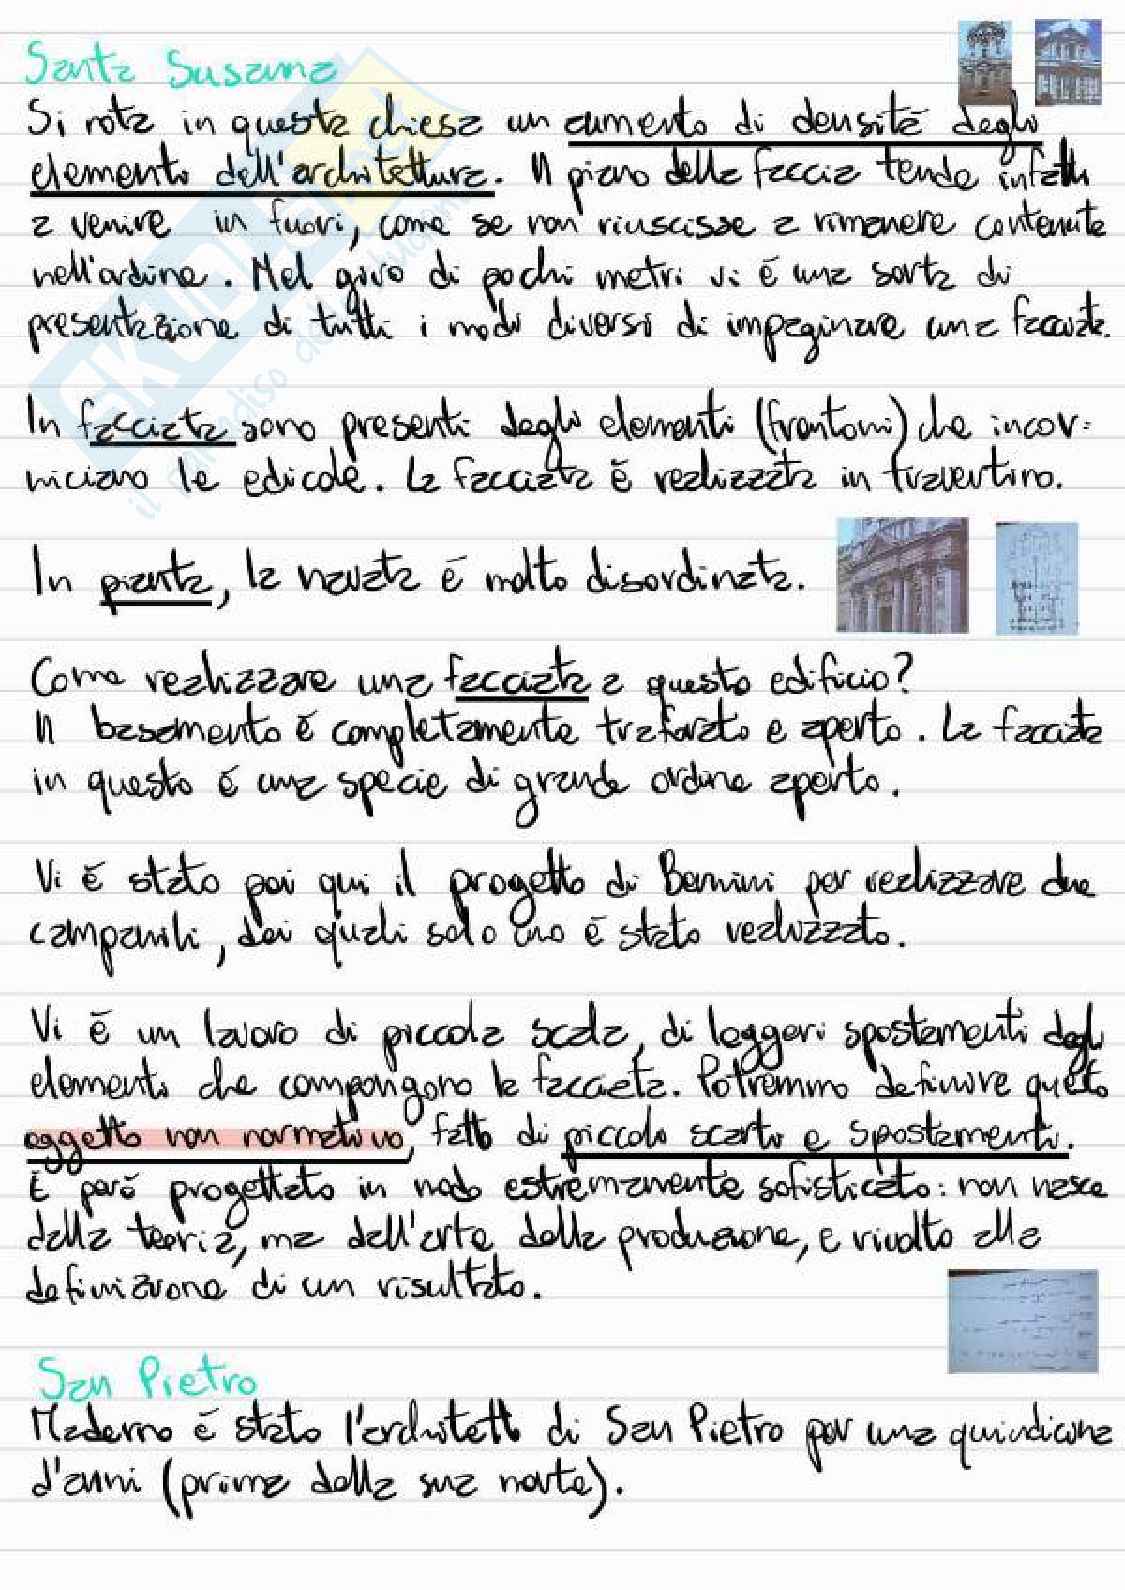 Santa Susanna
Si nota in questa chiesa un aumento di densità degli
elementi dell'architettura. Il piano della faccia tende infatti
a venire in fuori, come se non riuscisse a rimanere contenuta
nell'ordine. Nel giro di pochi metri vi è una sorta di
presentazione di tutti i modi diversi di impaginare una facciata.
In facciata sono presenti degli elementi (frontoni) che incor=
niciano le edicole. La facciata è realizzata in travertino.
In pianta, la navata è molto disordinata.
Come realizzare una facciata a questo edificio?
Il basamento è completamente traforato e aperto. La facciata
in questo è una specie di grande ordine aperto.
Vi è stato poi qui il progetto di Bernini per realizzare due
campanili, dei quali solo uno è stato realizzato.
Vi è un lavoro di piccola scala, di leggeri spostamenti degli
elementi che compongono la facciata. Potremmo definire questo
oggetto non normativo, fatto di piccoli scarti e spostamenti.
È però progettato in modo estremamente sofisticato: non nasce
dalla teoria, ma dall'arte della produzione, e rivolto alla
definizione di un risultato.
San Pietro
Maderno è stato l'architetto di San Pietro per una quindicina
d'anni (prima della sua morte).
SKUOLA.net
il paradiso dei